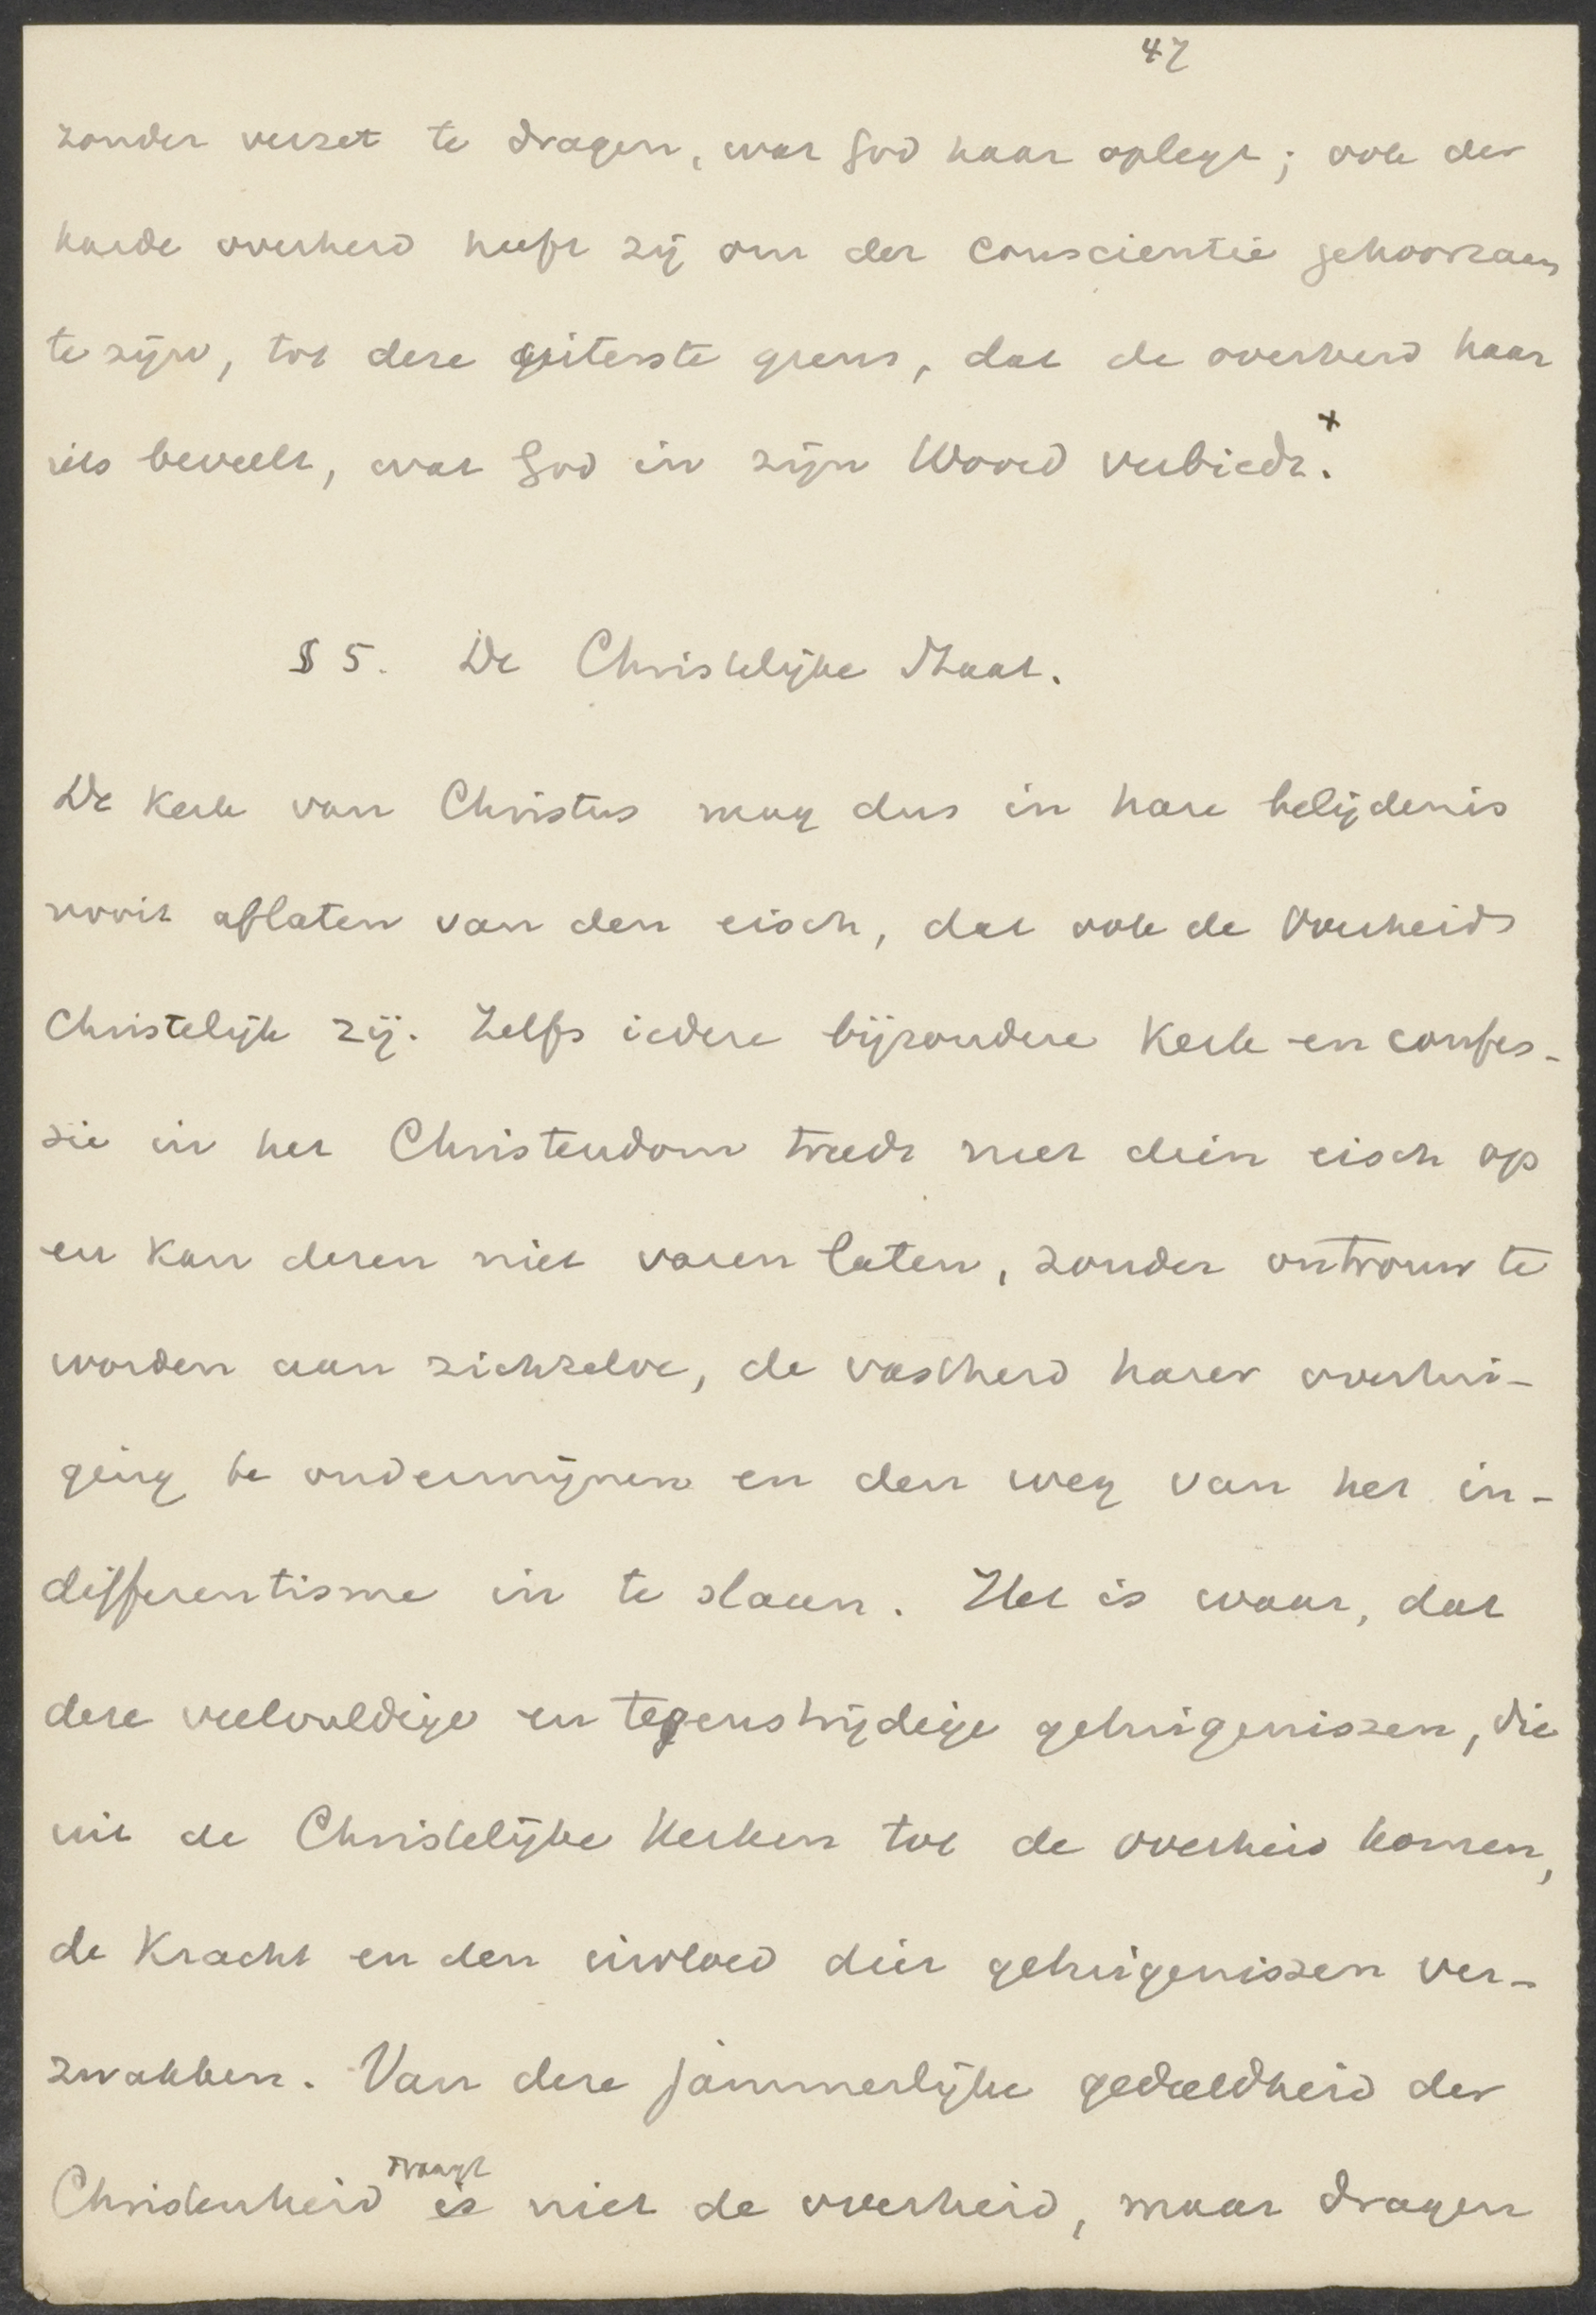 47
zonder verzet te dragen, wat God haar oplegt; ook der
harde overheid heeft zij om der conscientie gehoorzaam
te zijn, tot deze uiterste grens, dat de overheid haar
iets beveelt, wat God in zijn Woord verbiedt. x
§ 5. De Christelijke Staat.
De Kerk van Christus mag dus in hare belijdenis
nooit aflaten van den eisch, dat ook de Overheid
Christelijk zij. Zelfs iedere bijzondere Kerk en confes-
sie in het Christendom treedt met dien eisch op
en kan dezen niet varen laten, zonder ontrouw te
worden aan zichzelve, de vastheid harer overtui-
ging te ondermijnen en den weg van het in-
differentisme in te slaan. Het is waar, dat
deze veelvuldige en tegenstrijdige getuigenissen, die
uit de Christelijke Kerken tot de overheid komen,
de Kracht en den invloed dier getuigenissen ver-
zwakken. Van deze jammerlijke gedeeldheid der
draagt
Christenheid is niet de overheid, maar dragen